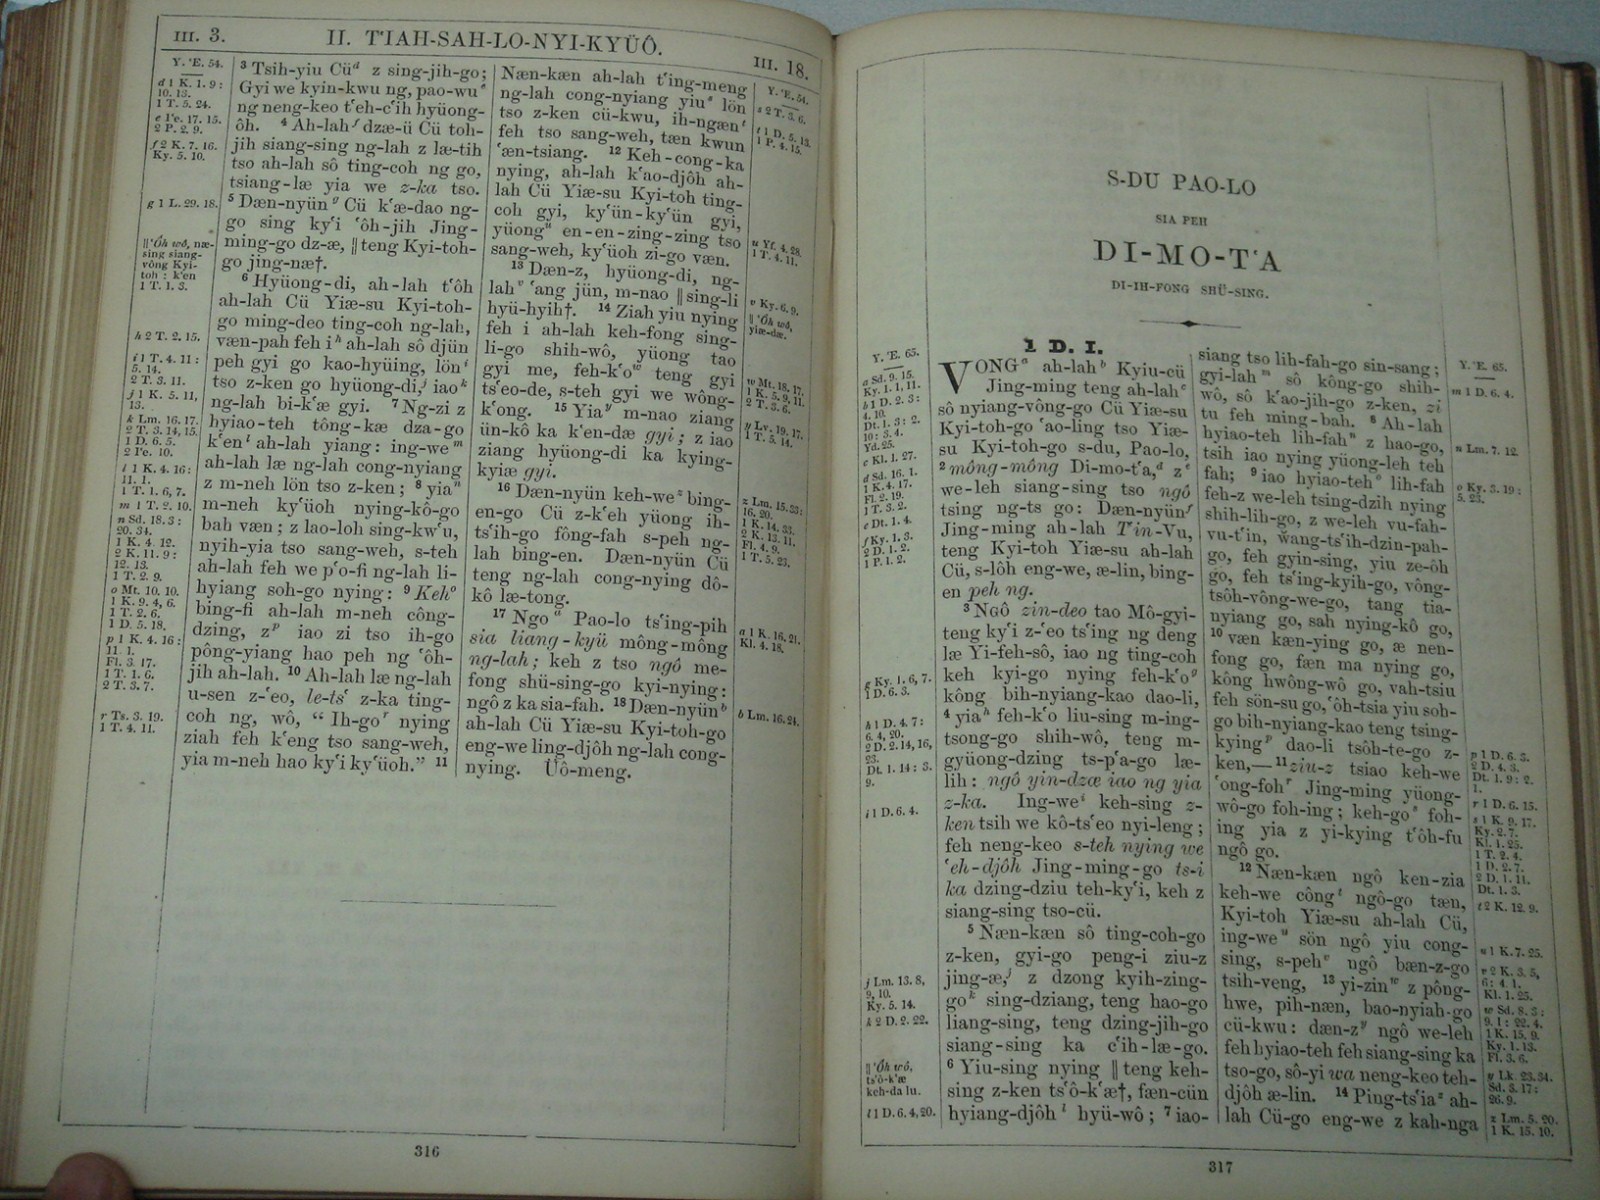 III. 3.
II. T'IAH-SAH-LO-NYI-KYÜÔ.
III. 18.
Y. 'E. 54.
d 1 K. 1. 9 :
10. 13.
1 T. 5. 24.
e 1'e. 17. 15.
2 P. 2. 9.
f 2 K. 7. 16.
Ky. 5. 10.
g 1 L. 29. 18.
‖ 'Ôh wô, næ-
sing siang-
vông Kyi-
toh : k'en
1 T. 1. 3.
h 2 T. 2. 15.
i 1 T. 4. 11 :
5. 14.
2 T. 3. 11.
j 1 K. 5. 11,
13.
k Lm. 16. 17.
2 T. 3. 14, 15.
1 D. 6. 5.
2 1'e. 10.
l 1 K. 4. 16 :
11. 1.
1 T. 1. 6, 7.
m 1 T. 2. 10.
n Sd. 18. 3 :
20. 34.
1 K. 4. 12.
2 K. 11. 9 :
12. 13.
1 T. 2. 9.
o Mt. 10. 10.
1 K. 9. 4, 6.
1 T. 2. 6.
1 D. 5. 18.
p 1 K. 4. 16 :
11. 1.
Fl. 3. 17.
1 T. 1. 6.
2 T. 3. 7.
r Ts. 3. 19.
1 T. 4. 11.
3 Tsih-yiu Cüd z sing-jih-go;
Gyi we kyin-kwu ng, pao-wue
ng neng-keo t'eh-c'ih hyüong-
ôh. 4 Ah-lahf dzæ-ü Cü toh-
jih siang-sing ng-lah z læ-tih
tso ah-lah sô ting-coh ng go,
tsiang-læ yia we z-ka tso.
5 Dæn-nyüng Cü k'æ-dao ng-
go sing ky'i 'ôh-jih Jing-
ming-go dz-æ, ‖ teng Kyi-toh-
go jing-næ†.
6 Hyüong-di, ah-lah t'ôh
ah-lah Cü Yiæ-su Kyi-toh-
go ming-deo ting-coh ng-lah,
væn-pah feh ih ah-lah sô djün
peh gyi go kao-hyüing, löni
tso z-ken go hyüong-di,j iaok
ng-lah bi-k'æ gyi. 7 Ng-zi z
hyiao-teh tông-kæ dza-go
k'enl ah-lah yiang: ing-wem
ah-lah læ ng-lah cong-nyiang
z m-neh lön tso z-ken; 8 yian
m-neh ky'üoh nying-kô-go
bah væn; z lao-loh sing-kw'u,
nyih-yia tso sang-weh, s-teh
ah-lah feh we p'o-fi ng-lah li-
hyiang soh-go nying: 9 Keho
bing-fi ah-lah m-neh công-
dzing, zp iao zi tso ih-go
pông-yiang hao peh ng 'ôh-
jih ah-lah. 10 Ah-lah læ ng-lah
u-sen z-'eo, le-ts' z-ka ting-
coh ng, wô, “ Ih-gor nying
ziah feh k'eng tso sang-weh,
yia m-neh hao ky'i ky'üoh.” 11
Næn-kæn ah-lah t'ing-meng
ng-lah cong-nyiang yius lön
tso z-ken cü-kwu, ih-ngænt
feh tso sang-weh, tæn kwun
'æn-tsiang. 12 Keh-cong-ka
nying, ah-lah k'ao-djôh ah-
lah Cü Yiæ-su Kyi-toh ting-
coh gyi, ky'ün-ky'ün gyi,
yüongu en-en-zing-zing tso
sang-weh, ky'üoh zi-go væn.
13 Dæn-z, hyüong-di, ng-
lahv 'ang jün, m-nao ‖ sing-li
hyü-hyih†. 14 Ziah yiu nying
feh i ah-lah keh-fong sing-
li-go shih-wô, yüong tao
gyi me, feh-k'ow teng gyi
ts'eo-de, s-teh gyi we wông-
k'ong. 15 Yiay m-nao ziang
ün-kô ka k'en-dæ gyi; z iao
ziang hyüong-di ka kying-
kyiæ gyi.
16 Dæn-nyün keh-wez bing-
en-go Cü z-k'eh yüong ih-
ts'ih-go fông-fah s-peh ng-
lah bing-en. Dæn-nyün Cü
teng ng-lah cong-nying dô-
kô læ-tong.
17 Ngoa Pao-lo ts'ing-pih
sia liang-kyü mông-mông
ng-lah; keh z tso ngô me-
fong shü-sing-go kyi-nying:
ngô z ka sia-fah. 18 Dæn-nyünb
ah-lah Cü Yiæ-su Kyi-toh-go
eng-we ling-djôh ng-lah cong-
nying. Üô-meng.
Y. 'E. 54.
s 2 T. 3. 6.
t 1 D. 5. 13.
1 P. 4. 15.
u Yf. 4. 28.
1 T. 4. 11.
v Ky. 6. 9.
‖ 'Ôh wô,
yiæ-dæ.
w Mt. 18. 17.
1 K. 5. 9, 11.
2 T. 3. 6.
y Lv. 19. 17.
1 T. 5. 14.
z Lm. 15. 33 :
16. 20.
1 K. 14. 33.
2 K. 13. 11.
Fl. 4. 9.
1 T. 5. 23.
a 1 K. 16. 21.
Kl. 4. 18.
b Lm. 16. 24.
316
S-DU PAO-LO
SIA PEH
DI-MO-T'A
DI-IH-FONG SHÜ-SING.
Y. 'E. 65.
a Sd. 9. 15.
Ky. 1. 1, 11.
b 1 D. 2. 3 :
4. 10.
Dt. 1. 3 : 2.
10 : 3. 4.
Yd. 25.
c Kl. 1. 27.
d Sd. 16. 1.
1 K. 4. 17.
Fl. 2. 19.
1 T. 3. 2.
e Dt. 1. 4.
f Ky. 1. 3.
2 D. 1. 2.
1 P. 1. 2.
g Ky. 1. 6, 7.
1 D. 6. 3.
h 1 D. 4. 7 :
6. 4, 20.
2 D. 2. 14, 16,
23.
Dt. 1. 14 : 3.
9.
i 1 D. 6. 4.
j Lm. 13. 8,
9, 10.
Ky. 5. 14.
k 2 D. 2. 22.
‖ 'Ôh wô,
ts'ô-k'æ
keh-da lu.
l 1 D. 6. 4, 20.
1 D. I.
VONGa ah-lahb Kyiu-cü
Jing-ming teng ah-lahc
sô nyiang-vông-go Cü Yiæ-su
Kyi-toh-go 'ao-ling tso Yiæ-
su Kyi-toh-go s-du, Pao-lo,
2 mông-mông Di-mo-t'a,d ze
we-leh siang-sing tso ngô
tsing ng-ts go: Dæn-nyünf
Jing-ming ah-lah T'in-Vu,
teng Kyi-toh Yiæ-su ah-lah
Cü, s-lôh eng-we, æ-lin, bing-
en peh ng.
3 NGÔ zin-deo tao Mô-gyi-
teng ky'i z-'eo ts'ing ng deng
læ Yi-feh-sô, iao ng ting-coh
keh kyi-go nying feh-k'og
kông bih-nyiang-kao dao-li,
4 yiah feh-k'o liu-sing m-ing-
tsong-go shih-wô, teng m-
gyüong-dzing ts-p'a-go læ-
lih: ngô yin-dzæ iao ng yia
z-ka. Ing-wei keh-sing z-
ken tsih we kô-ts'eo nyi-leng;
feh neng-keo s-teh nying we
'eh-djôh Jing-ming-go ts-i
ka dzing-dziu teh-ky'i, keh z
siang-sing tso-cü.
5 Næn-kæn sô ting-coh-go
z-ken, gyi-go peng-i ziu-z
jing-æ,j z dzong kyih-zing-
gok sing-dziang, teng hao-go
liang-sing, teng dzing-jih-go
siang-sing ka c'ih-læ-go.
6 Yiu-sing nying ‖ teng keh-
sing z-ken ts'ô-k'æ†, fæn-cün
hyiang-djôhl hyü-wô; 7 iao-
siang tso lih-fah-go sin-sang;
gyi-lahm sô kông-go shih-
wô, sô k'ao-jih-go z-ken, zi
tu feh ming-bah. 8 Ah-lah
hyiao-teh lih-fahn z hao-go,
tsih iao nying yüong-leh teh
fah; 9 iao hyiao-teho lih-fah
feh-z we-leh tsing-dzih nying
shih-lih-go, z we-leh vu-fah-
vu-t'in, wang-ts'ih-dzin-pah-
go, feh gyin-sing, yiu ze-ôh
go, feh ts'ing-kyih-go, vông-
tsôh-vông-we-go, tang tia-
nyiang go, sah nying-kô go,
10 væn kæn-ying go, æ nen-
fong go, fæn ma nying go,
kông hwông-wô go, vah-tsiu
feh sön-su go, 'ôh-tsia yiu soh-
go bih-nyiang-kao teng tsing-
kyingp dao-li tsôh-te-go z-
ken,— 11 ziu-z tsiao keh-we
'ong-fohr Jing-ming yüong-
wô-go foh-ing; keh-gos foh-
ing yia z yi-kying t'ôh-fu
ngô go.
12 Næn-kæn ngô ken-zia
keh-we côngt ngô-go tæn,
Kyi-toh Yiæ-su ah-lah Cü,
ing-weu sön ngô yiu cong-
sing, s-pehv ngô bæn-z-go
tsih-veng, 13 yi-zinw z pông-
hwe, pih-næn, bao-nyiah-go
cü-kwu: dæn-zy ngô we-leh
feh hyiao-teh feh siang-sing ka
tso-go, sô-yi wa neng-keo teh-
djôh æ-lin. 14 Ping-ts'iaz ah-
lah Cü-go eng-we z kah-nga
Y. 'E. 65.
m 1 D. 6. 4.
n Lm. 7. 12.
o Ky. 3. 19 :
5. 23.
p 1 D. 6. 3.
2 D. 4. 3.
Dt. 1. 9 : 2.
1.
r 1 D. 6. 15.
s 1 K. 9. 17.
Ky. 2. 7.
Kl. 1. 25.
1 T. 2. 4.
1 D. 2. 7.
2 D. 1. 11.
Dt. 1. 3.
t 2 K. 12. 9.
u 1 K. 7. 25.
v 2 K. 3. 5,
6 : 4. 1.
Kl. 1. 25.
w Sd. 8. 3 :
9. 1 : 22. 4.
1 K. 15. 9.
Ky. 1. 13.
Fl. 3. 6.
y Lk. 23. 34.
Sd. 3. 17 :
26. 9.
z Lm. 5. 20.
1 K. 15. 10.
317